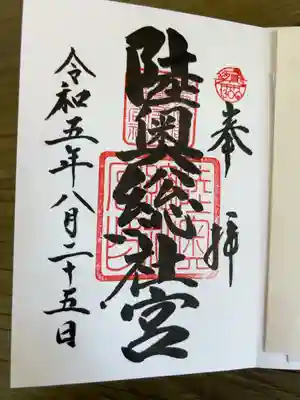 奉拝
陸奥総社宮
令和五年八月二十五日